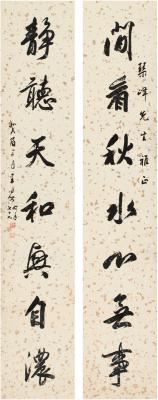 琴峰先生雅正
閒看秋水心無事
靜聽天和興自濃